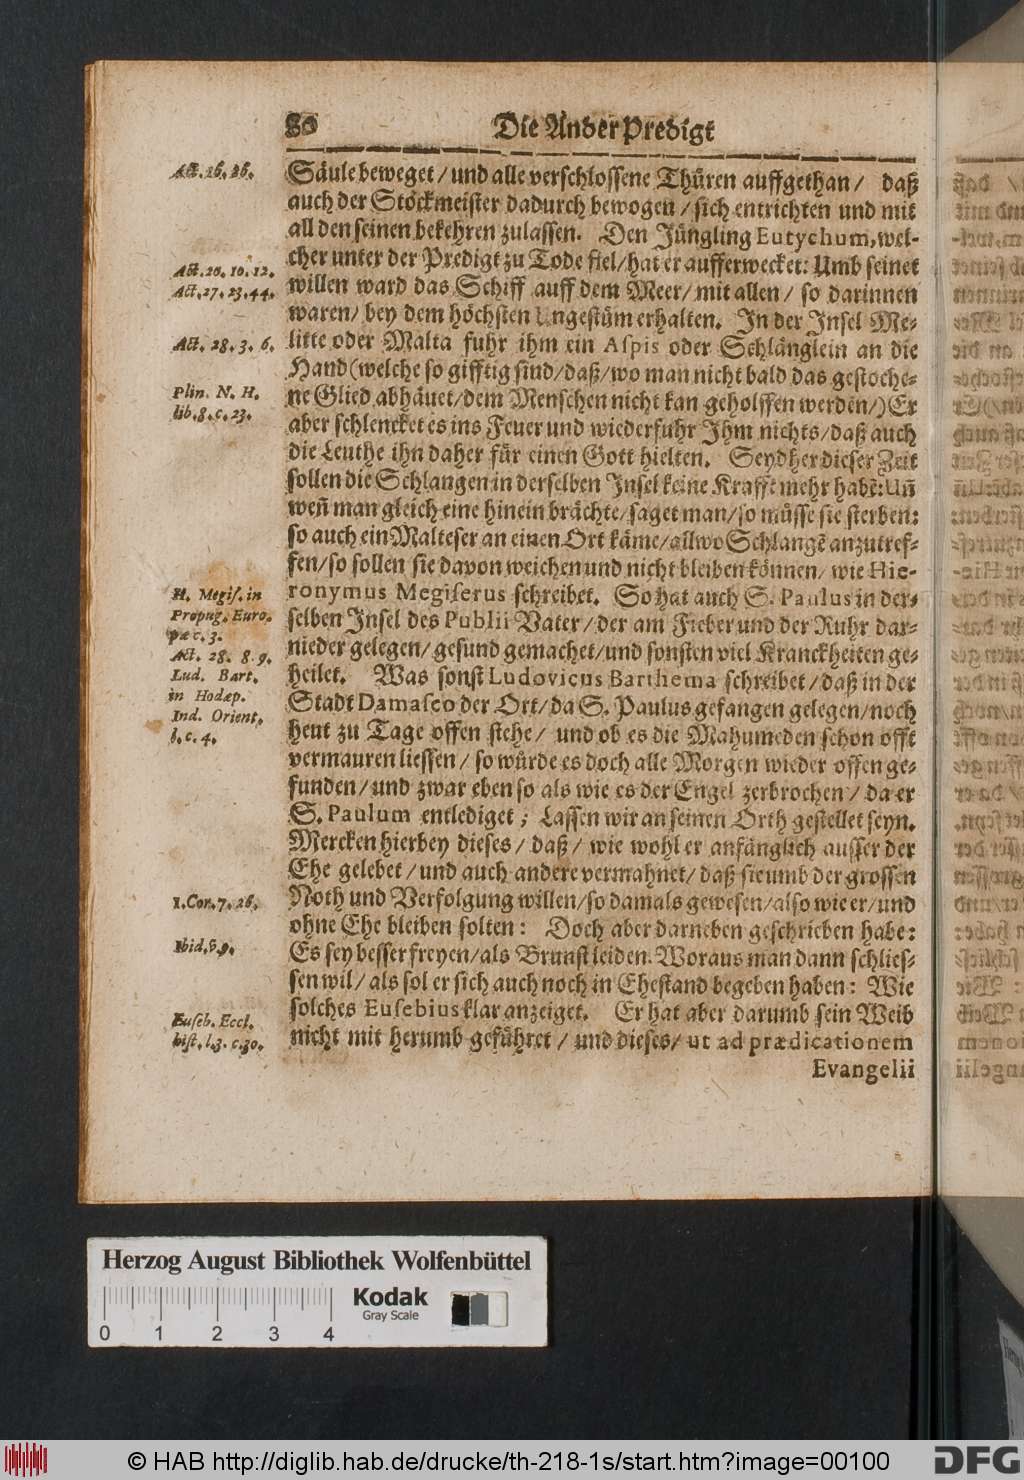 80 Die Ander Predigt
Act. 16. 26.
Säule beweget / und alle verschlossene Thüren auffgethan / daß
auch der Stöckmeister dadurch bewogen / sich entrichten und mit
all den seinen bekehren zulassen. Den Jüngling Eutychum, wel-
Act. 20. 10. 12.
cher unter der Predigt zu Tode fiel / hat er aufferwecket: Umb seinet
Act. 27. 23. 44.
willen ward das Schiff auff dem Meer / mit allen / so darinnen
waren / bey dem höchsten Ungestüm erhalten. In der Insel Me-
Act. 28. 3. 6.
litte oder Malta fuhr ihm ein Aspis oder Schlänglein an die
Hand (welche so gifftig sind / daß / wo man nicht bald das gestoche-
Plin. N. H.
ne Glied abhäuet / dem Menschen nicht kan geholffen werden /) Er
lib. 8. c. 23.
aber schlencket es ins Feuer und wiederfuhr Ihm nichts / daß auch
die Leuthe ihn daher für einen Gott hielten. Seydher dieser Zeit
sollen die Schlangen in derselben Insel keine Krafft mehr habẽ: Uñ
weñ man gleich eine hinein brächte / saget man / so müsse sie sterben:
so auch ein Malteser an einen Ort käme / allwo Schlangẽ anzutref-
fen / so sollen sie davon weichen und nicht bleiben können / wie Hie-
H. Megis. in
ronymus Megiserus schreibet. So hat auch S. Paulus in der-
Propug. Euro-
selben Insel des Publii Vater / der am Fieber und der Ruhr dar-
pæ c. 3.
nieder gelegen / gesund gemachet / und sonsten viel Kranckheiten ge-
Act. 28. 8. 9.
heilet. Was sonst Ludovicus Barthema schreibet / daß in der
Lud. Bart.
in Hodæp.
Stadt Damasco der Ort / da S. Paulus gefangen gelegen / noch
Ind. Orient.
l. c. 4.
heut zu Tage offen stehe / und ob es die Mahumeden schon offt
vermauren liessen / so würde es doch alle Morgen wieder offen ge-
funden / und zwar eben so als wie es der Engel zerbrochen / da er
S. Paulum entlediget; Lassen wir an seinen Orth gestellet seyn.
Mercken hierbey dieses / daß / wie wohl er anfänglich ausser der
Ehe gelebet / und auch andere vermahnet / daß sie umb der grossen
1. Cor. 7. 26.
Noth und Verfolgung willen / so damals gewesen / also wie er / und
ohne Ehe bleiben solten: Doch aber darneben geschrieben habe:
Ibid. v. 9.
Es sey besser freyen / als Brunst leiden. Woraus man dann schlies-
sen wil / als sol er sich auch noch in Ehestand begeben haben: Wie
solches Eusebius klar anzeiget. Er hat aber darumb sein Weib
Euseb. Eccl.
hist. l. 3. c. 30.
nicht mit herumb geführet / und dieses / ut ad prædicationem
Evangelii
Herzog August Bibliothek Wolfenbüttel
Kodak
Gray Scale
0 1 2 3 4
© HAB http://diglib.hab.de/drucke/th-218-1s/start.htm?image=00100
DFG